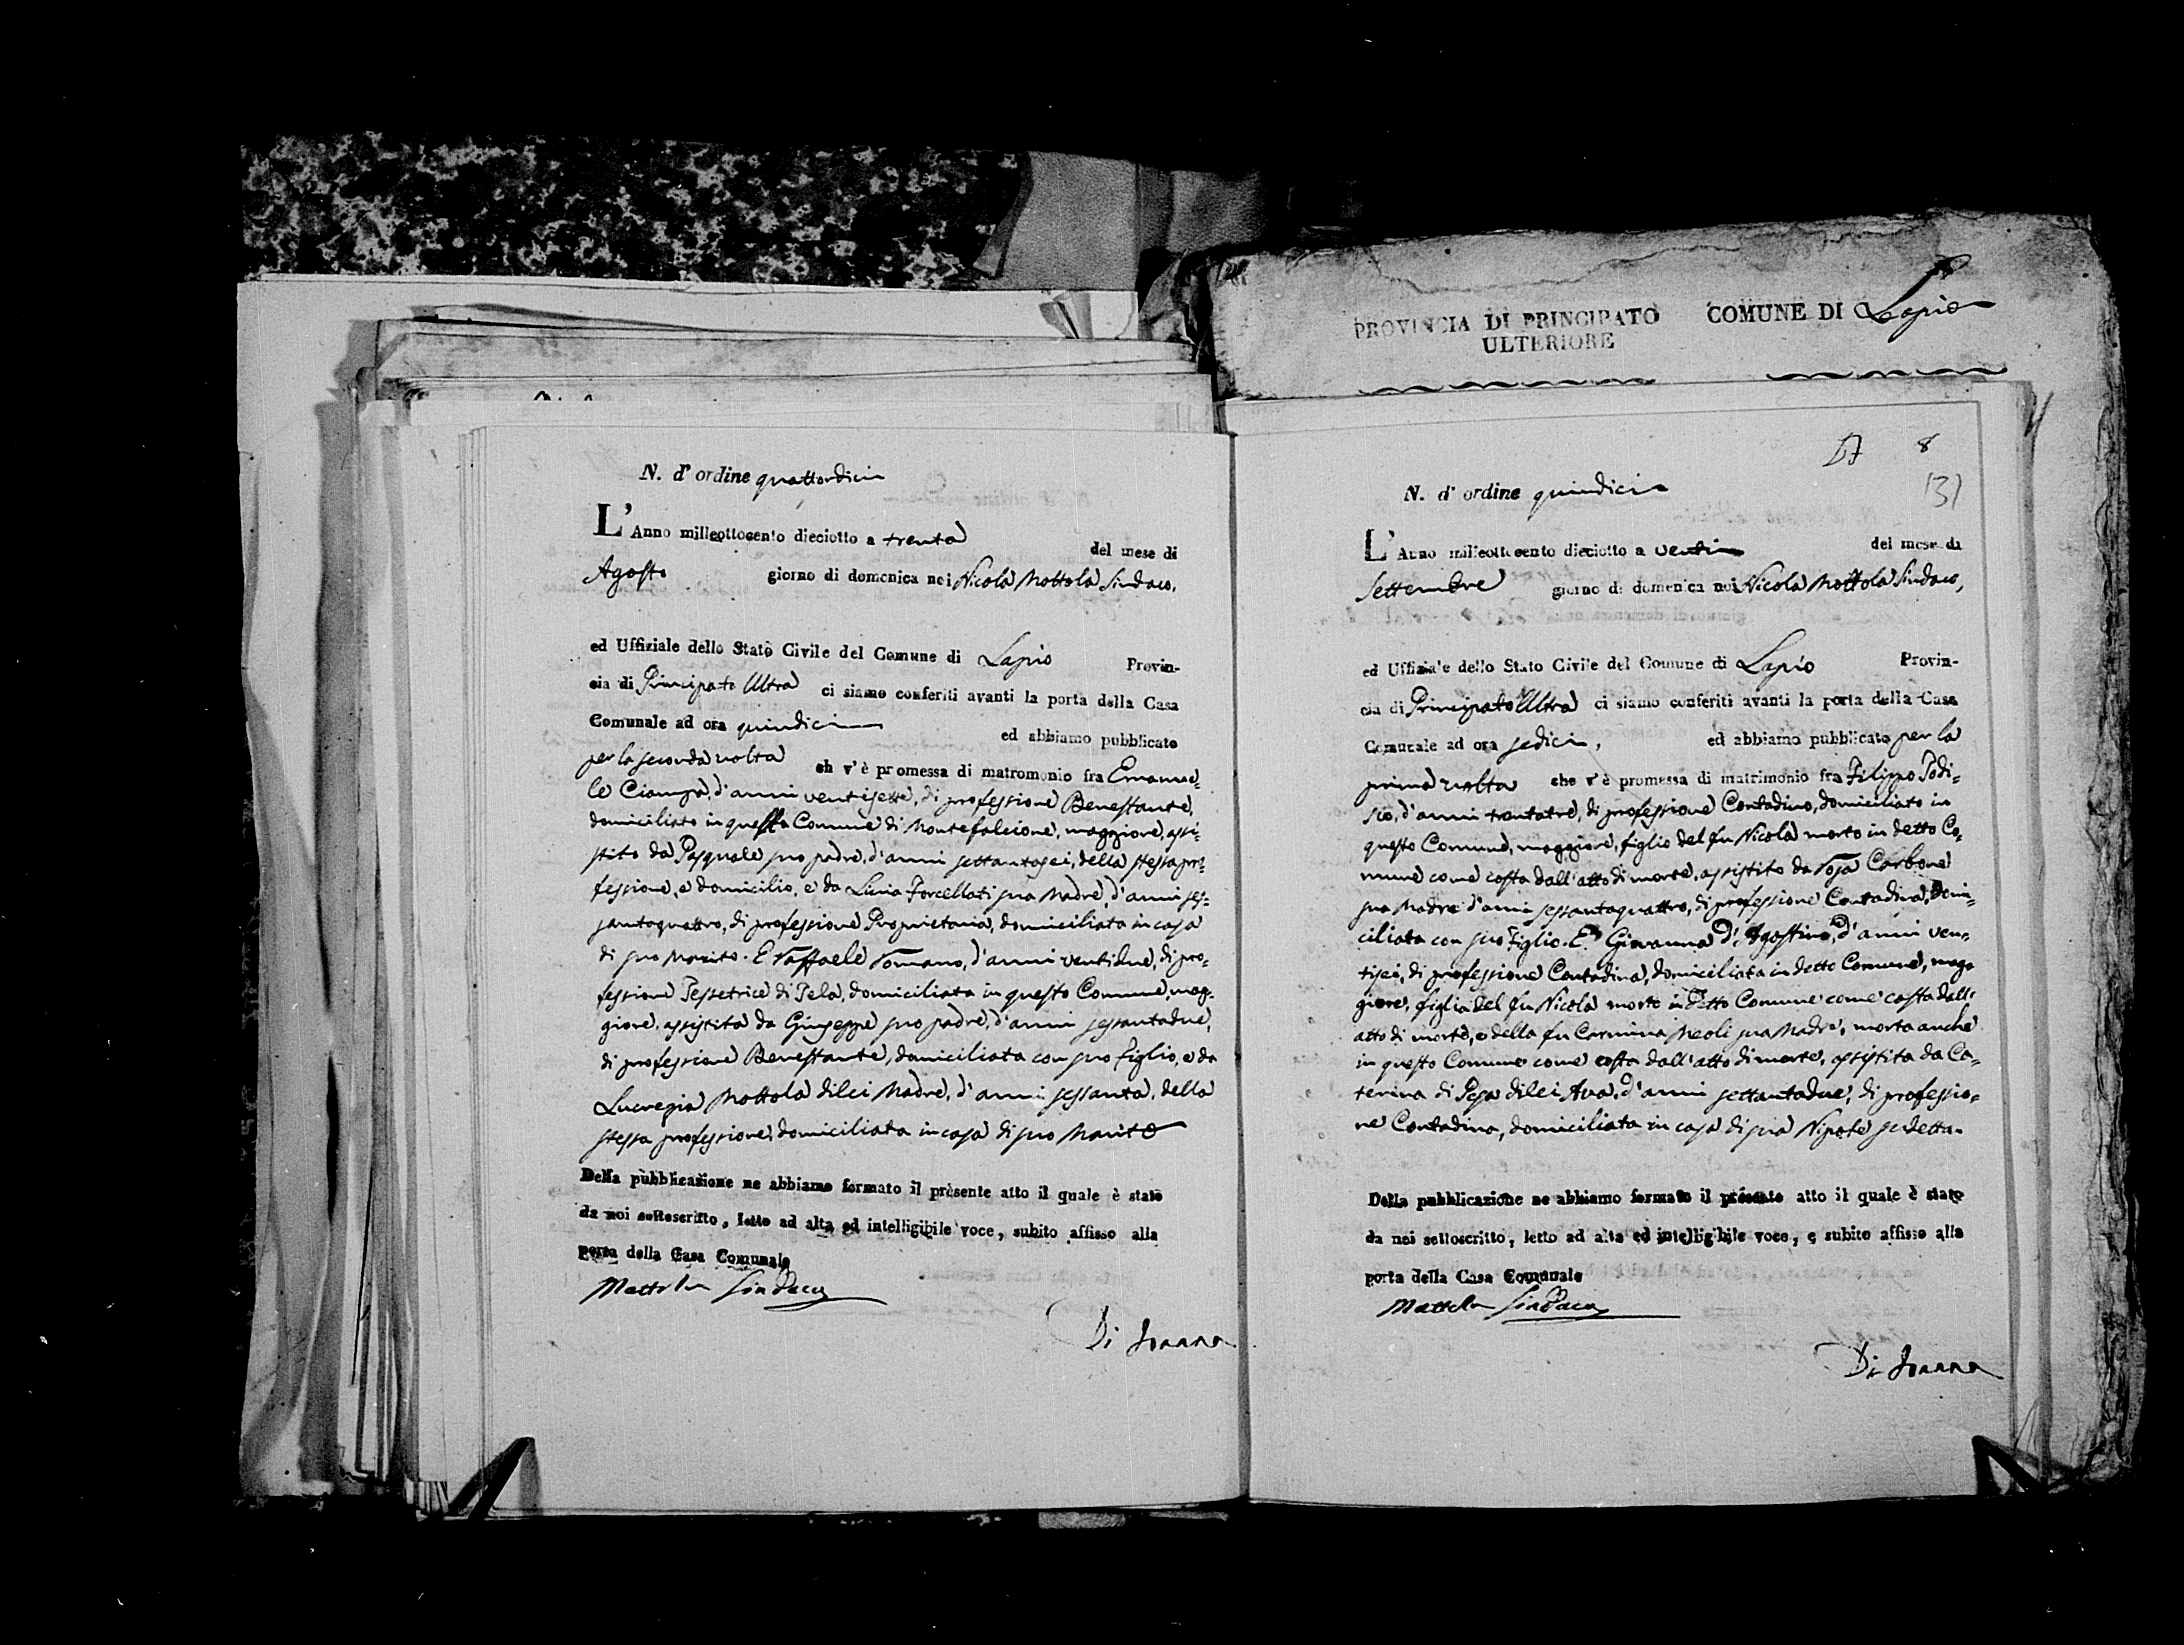 PROVINCIA DI PRINCIPATO
ULTERIORE
COMUNE DI Lapio
N. d' ordine quattordici
L'Anno milleottocento dieciotto a trenta del mese di
Agosto giorno di domenica noi Nicola Mottola Sindaco,
ed Uffiziale dello Stato Civile del Comune di Lapio Provin-
cia di Principato Ultra ci siamo conferiti avanti la porta della Casa
Comunale ad ora quindici ed abbiamo pubblicato
per la seconda volta ch v'è promessa di matromonio fra Emanue-
le Ciampa, d'anni ventisette, di professione Benestante,
domiciliato in questo Comune di Montefalcione, maggiore, assi-
stito da Pasquale suo padre, d'anni settantasei, della stessa pro-
fessione, e domicilio, e da Livia Forcellati sua Madre, d'anni ses-
santaquattro, di professione Proprietaria, domiciliata in casa
di suo Marito. E Raffaele Romano, d'anni ventidue, di pro-
fessione Tessetrice di Tela, domiciliata in questo Comune, mag-
giore, assistita da Giuseppe suo padre, d'anni sessantadue,
di professione Benestante, domiciliata con suo figlio, e da
Lucrezia Mottola di lei Madre, d'anni sessanta, della
stessa professione, domiciliata in casa di suo Marito
Della pubblicazione ne abbiamo formato il presente atto il quale è stato
da noi sottoscritto, letto ad alta ed intelligibile voce, subito affisso alla
porta della Casa Comunale
Mottola Sindaco
Di Joanna
17 8
131
N. d' ordine quindici
L'Anno milleottocento dieciotto a venti del mese di
Settembre giorno di domenica noi Nicola Mottola Sindaco,
ed Uffiziale dello Stato Civile del Comune di Lapio Provin-
cia di Principato Ultra ci siamo conferiti avanti la porta della Casa
Comunale ad ora sedici, ed abbiamo pubblicato per la
prima volta che v'è promessa di matrimonio fra Filippo Todi-
sco, d'anni trentatre, di professione Contadino, domiciliato in
questo Comune, maggiore, figlio del fu Nicola morto in detto Co-
mune come costa dall'atto di morte, assistito da Rosa Carbone
sua Madre d'anni sessantaquattro, di professione Contadina, Domi-
ciliata con suo Figlio. E Giovanna d'Agostino, d'anni ven-
tisei, di professione Contadina, domiciliata in detto Comune, mag-
giore, figlia del fu Nicola morto in detto Comune come costa dall'
atto di morte, e della fu Carmina Meoli sua Madre, morta anche
in questo Comune come costa dall'atto di morte, assistita da Ca-
terina di Pesa di lei Ava, d'anni settantadue, di professio-
ne Contadina, domiciliata in casa di sua Nipote sudetta.
Della pubblicazione ne abbiamo formato il presente atto il quale è stato
da noi sottoscritto, letto ad alta ed intelligibile voce, e subito affisso alla
porta della Casa Comunale
Mottola Sindaco
Di Joanna